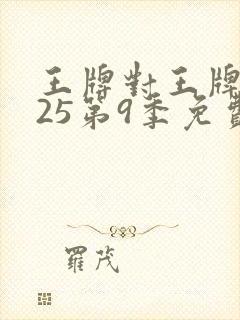 王牌對王牌
25第9季免費
羅茂